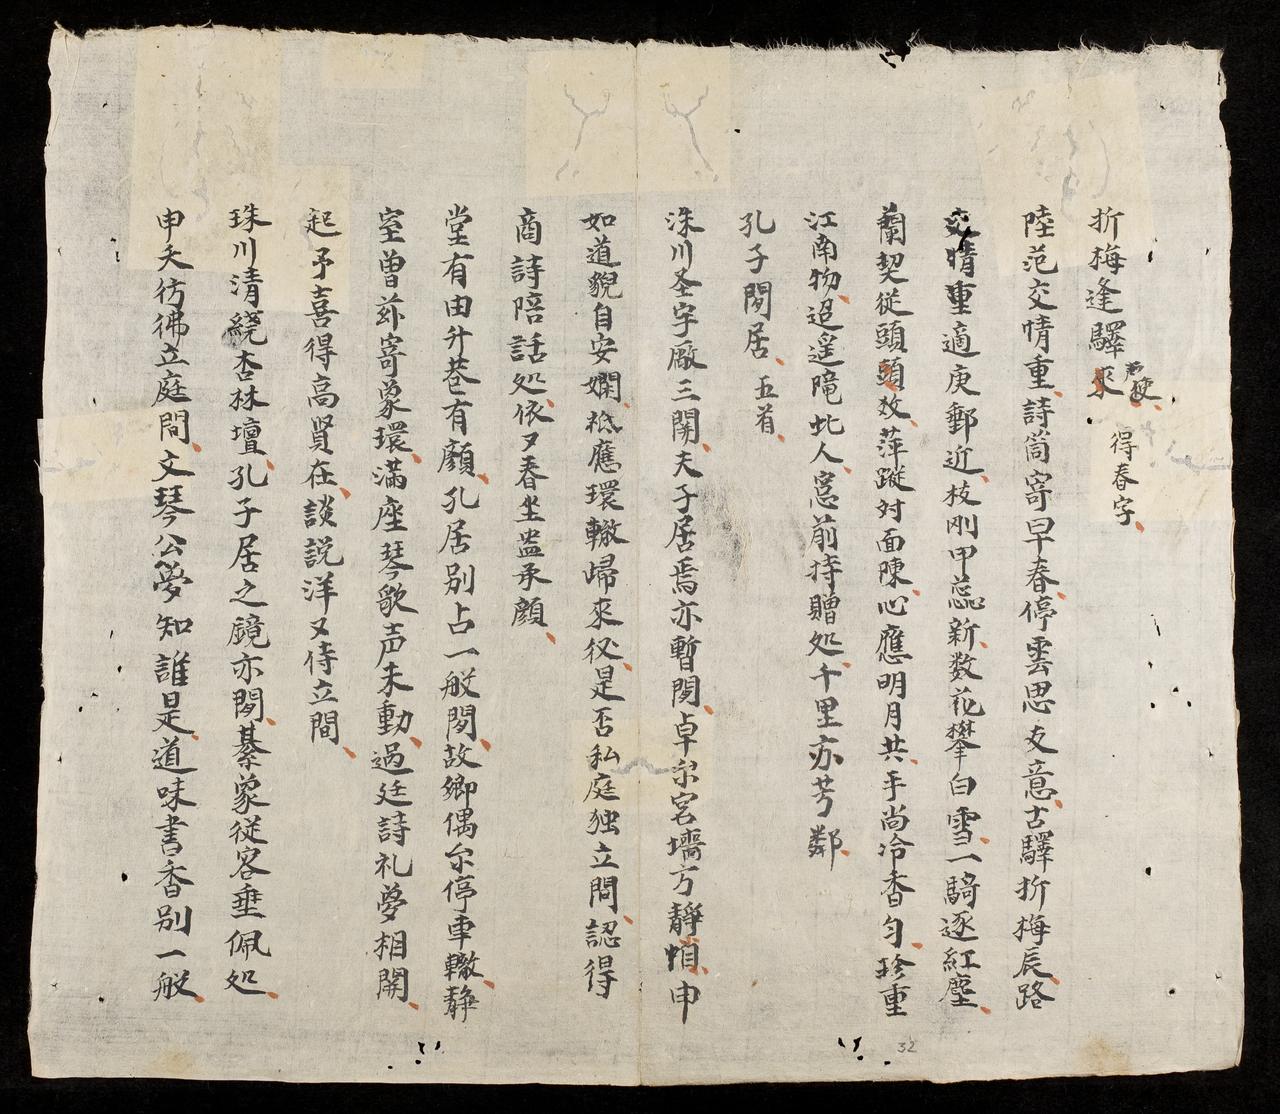 折梅逢驛使
得春字
陸范交情重詩筒寄早春停雲思友意古驛折梅辰路
交情重適庚郵近枝刚甲蕊新数花攀白雪一騎逐紅塵
蘭契従頭效萍蹤对面陳心應明月共手尚冷香匀珍重
江南物迢遥隴北人窓前持贈処千里亦芳鄰
孔子閒居 五首
洙川圣宇厰三閒夫子居焉亦暫閒卓尔宮墻方靜悄申
如道貌自安嫻衹應環轍歸來後是否私庭独立間認得
商詩陪話処依夕春坐盎承顔
堂有由升巷有顔孔居别占一般閒故鄉偶尔停車轍靜
室曾茲寄象環滿座琴歌声未動過廷詩礼夢相関
起予喜得高賢在談説洋又侍立間
珠川清繞杏林壇孔子居之鏡亦閒綦象従容垂佩処
申夭彷彿立庭間文琴公夢知誰是道味書香别一般
32